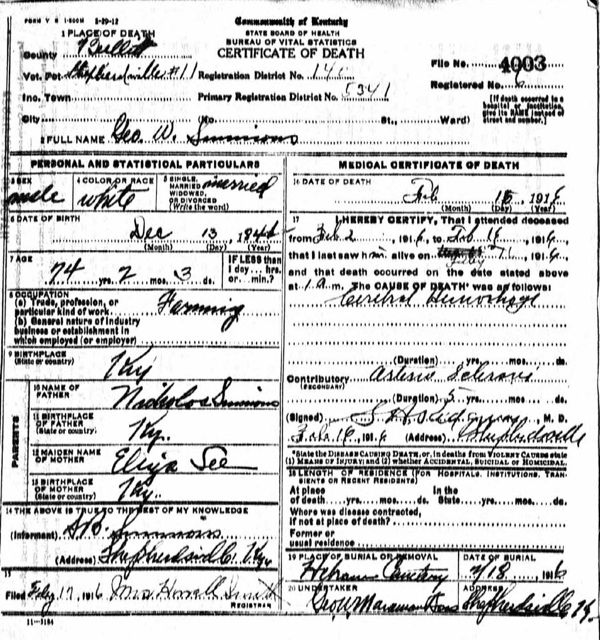 FORM V S 1-500M 3-29-12
1 PLACE OF DEATH
County Bullitt
Vot. Pct Shepherdsville #11
Inc. Town
City (No. St., Ward)
Commonwealth of Kentucky
STATE BOARD OF HEALTH
BUREAU OF VITAL STATISTICS
CERTIFICATE OF DEATH
Registration District No.
Primary Registration District No. 5341
File No. 4003
Registered No.
[If death occurred in a
hospital or institution,
give its NAME instead of
street and number.]
2 FULL NAME Geo. W. Simmons
PERSONAL AND STATISTICAL PARTICULARS
3 SEX
male
4 COLOR OR RACE
white
5 SINGLE,
MARRIED
WIDOWED,
OR DIVORCED
(Write the word)
married
6 DATE OF BIRTH
Dec 13, 184
(Month) (Day) (Year)
7 AGE
74 yrs. 2 mos. 3 ds.
IF LESS than
1 day... hrs.
or... min.?
8 OCCUPATION
(a) Trade, profession, or
particular kind of work Farming
(b) General nature of industry
business or establishment in
which employed (or employer)
9 BIRTHPLACE
(State or country) Ky
PARENTS
10 NAME OF
FATHER Nicholas Simmons
11 BIRTHPLACE
OF FATHER
(State or country) Ky.
12 MAIDEN NAME
OF MOTHER Eliza See
13 BIRTHPLACE
OF MOTHER
(State or country) Ky.
14 THE ABOVE IS TRUE TO THE BEST OF MY KNOWLEDGE
(Informant) Simmons
(Address) Shepherdsville Ky.
15
Filed Feby 17, 1916 Mrs Howell Smith
REGISTRAR
11-3184
MEDICAL CERTIFICATE OF DEATH
16 DATE OF DEATH
Feb 15, 1916
(Month) (Day) (Year)
17 I HEREBY CERTIFY, That I attended deceased
from Feb 2, 1916, to Feb 16, 1916,
that I last saw him alive on 1916,
and that death occurred on the date stated above
at 1 a.m. The CAUSE OF DEATH was as follows:
Cerebral Hemorhage
(Duration) yrs. mos. ds.
Contributory Arterio Sclerosis
(SECONDARY)
(Duration) 5 yrs. mos. ds.
(Signed) M. D.
Feb. 16, 1916 (Address) Shepherdsville
*State the DISEASE CAUSING DEATH, or, in deaths from VIOLENT CAUSES state
(1) MEANS OF INJURY; and (2) whether ACCIDENTAL, SUICIDAL or HOMICIDAL.
18 LENGTH OF RESIDENCE (FOR HOSPITALS, INSTITUTIONS, TRAN-
SIENTS OR RECENT RESIDENTS)
At place In the
of death yrs. mos. ds. State yrs. mos. ds.
Where was disease contracted,
if not at place of death?
Former or
usual residence
19 PLACE OF BURIAL OR REMOVAL
Hebron Cemetery
DATE OF BURIAL
2/18, 1916
20 UNDERTAKER
Geo W Maraman & Sons
ADDRESS
Shepherdsville Ky.